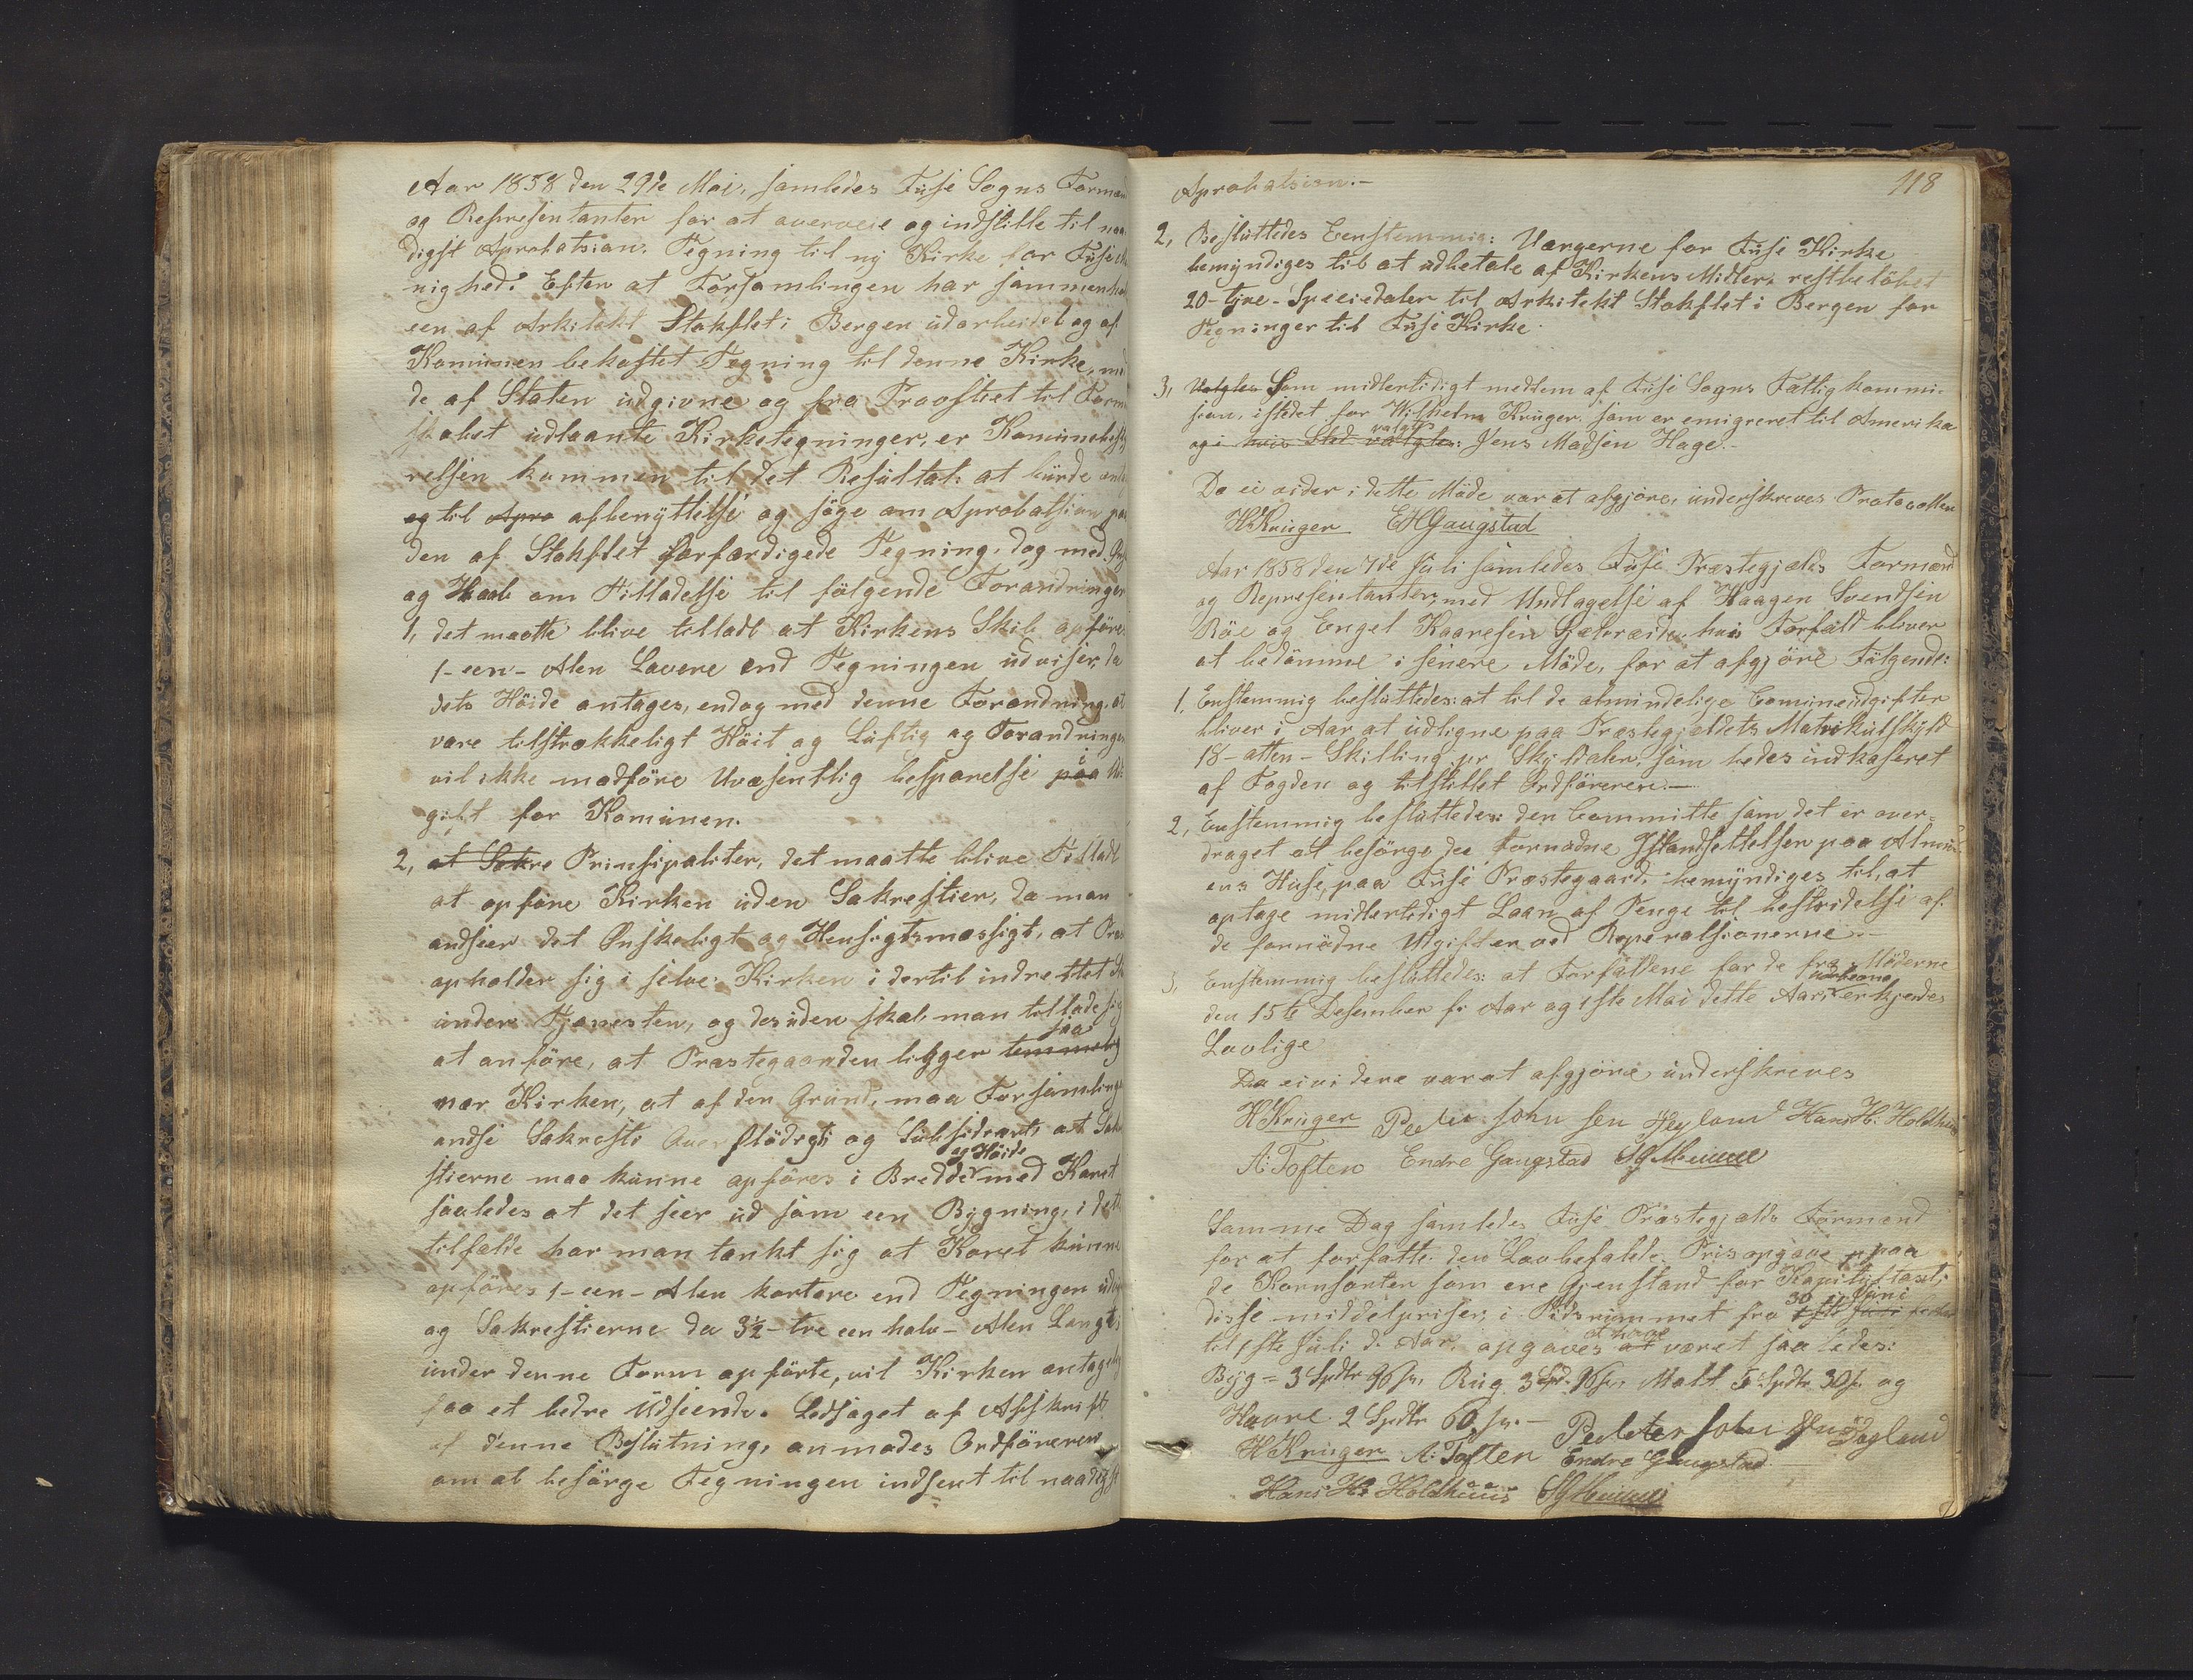 Aar 1858 den 29de Mai, samledes Fuse Sogns Formæn
og Repræsentanter for at overveie og indstille til naa
digst Aprobatsion. Tegning til ny Kirke for Fuse Me
nighed. Efter at Forsamlingen har sammenho
een af Arkitekt Stokflet i Bergen udarbeidet og af
Komunen bekostet Tegning til denne Kirke, me
de af Staten udgivne og fra Proostiet til Form
skabet udlaante Kirketegninger, er Komunebesty
relsen kommen til det Resultat: at burde ant
og til Apro afbenyttelse og søge om Aprobatsion paa
den af Stokflet forfærdigede Tegning, dog med
og Haab om Tilladelse til følgende Forandringer
1, det maatte blive tilladt at Kirkens Skib opføre
1-een- Alen Lavere end Tegningen udviser, da
dets Høide antages, endog med denne Forandring, at
være tilstrækkeligt Høit og Luftig og Forandringen
vil ikke medføre Uvæsentlig besparelse paa i Ud
gift for Komunen.
2, at Sakre Prinsipaliter, det maatte blive Tilladt
at opføre Kirken uden Sakrestier, da man
andseer det Ønskeligt og Hensigtsmæssigt, at Præs
opholder sig i selve Kirken i dertil indrettet St
under Tjenesten, og desuden skal man tillade sig
at anføre, at Præstegaarden ligger temmelig saa
nær Kirken, at af den Grund, maa Forsamlinge
andse Sakresti Overflødigt og Subsidært at Sakr
stierne maa kunne opføres i Bredde og Høide med Koret
saaledes at det seer ud som een Bygning, i dette
tilfælde har man tænkt sig at Koret kunne
opføres 1-een- Alen kortere end Tegningen udv
og Sakrestierne da 3½-tre een halv- Alen Lang
under denne Form opførte, vil Kirken antagelig
faa et bedre Udseende. Ledsaget af Afskrift
af denne Beslutning, anmodes Ordføreren
om at besørge Tegningen indsent til naadigst
118
Aprobatsion.-
2, Besluttedes Eenstemmig: Værgerne for Fuse Kirke
bemyndiges til at udbetale af Kirkens Midler, restbeløbet
20-tyve-Speciedaler til Arkitekt Stokflet i Bergen for
Tegninger til Fuse Kirke.
3, Valgtes Som midlertidigt medlem af Fuse Sogns Fattigkommi-
sion, istedet for Wilhelm Krüger som er emigreret til Amerika
og i hvis Sted valgtes valgtes: Jens Madsen Hage.-
Da ei vider i dette Møde var at afgjøre, underskreves Protocollen
HKrüger EHGaugstad
Aar 1858 den 7de Juli samledes Fuse Præstegjælds Formænd
og Repræsentanter, med Undtagelse af Haagen Svendsen
Røe og Engel Kaaresen hvis Forfald bliver
at bedømme i senere Møde, for at afgjøre Følgende:
1. Enstemmig besluttedes: at til de almindelige Comuneudgifter
bliver i Aar at udligne paa Præstegjældets Matrikulskyld
18-atten-Skilling pr Skydaler, som bedes indkaseret
af Fogden og tilstillet Ordføreren.-
2, Enstemmig besluttedes: den Committe som det er over-
draget at besørge de Fornødne Istandsettelser paa Almu-
ens Huse, paa Fuse Præstegaard, bemyndiges til, at
optage midlertidigt Laan af Penge til bestridelse af
de fornødne Udgifter ved Reperatsionerne.-
3, Enstemmig besluttedes: at Forfaldene for de fra Møderne
den 15de Desember f: Aar og 1ste Mai dette Aar, erkjendes
Lovlige
Da ei videre var at afgjøre underskreves
HKrüger Peder John sen Heyland Hans H. Holdhus
A. Toften Endre Gaugstad
Samme Dag samledes Fuse Præstegjælds Formænd
for at forfatte den Lovbefalede Prisopgave paa
de Kornsorter som ere Gjenstand for Kapitelstaxt;
disse middelpriser, i Tidsrummet fra 30 Juni 1ste Juli
til 1ste Juli d. Aar, opgaves at have at været saaledes:
Byg = 3 Spdlr 96 s, Rug 3 Spd. 96 s, Malt 5 Spdlr 30 s. og
Havre 2 Spdlr 60 s.-
HKrüger A. Toften Endre Gaugstad
Hans H. Holdhuus